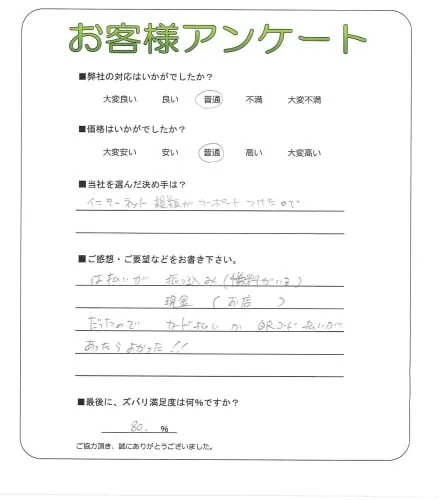 お客様アンケート
■弊社の対応はいかがでしたか？
大変良い 良い 普通 不満 大変不満
■価格はいかがでしたか？
大変安い 安い 普通 高い 大変高い
■当社を選んだ決め手は？
インターネット が つけたので
■ご感想・ご要望などをお書き下さい。
払いが 振り込み(
現金 (
だったので カード払い か QRコード払いが
あったらよかった!!
■最後に、ズバリ満足度は何％ですか？
80. ％
ご協力頂き、誠にありがとうございました。